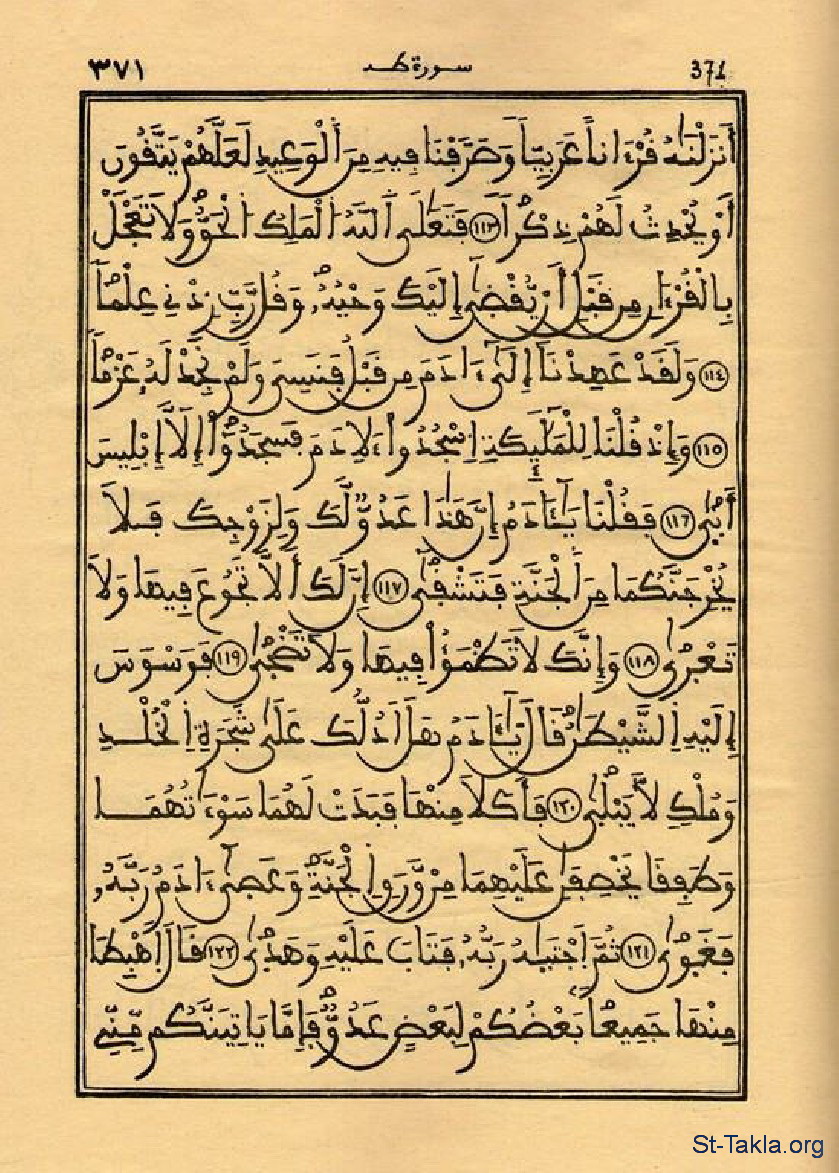 ٣٧١ سورة طه 371
أَنزَلْنَٰهُ قُرْءَاناً عَرَبِيّاً وَصَرَّفْنَا فِيهِ مِنَ ٱلْوَعِيدِ لَعَلَّهُمْ يَتَّقُونَ
أَوْ يُحْدِثُ لَهُمْ ذِكْراً ١١٣ فَتَعَٰلَى ٱللَّهُ ٱلْمَلِكُ ٱلْحَقُّ وَلَا تَعْجَلْ
بِالْقُرْءَانِ مِن قَبْلِ أَنْ يُّقْضَىٰ إِلَيْكَ وَحْيُهُۥ وَقُل رَّبِّ زِدْنِي عِلْماً
١١٤ وَلَقَدْ عَهِدْنَآ إِلَىٰٓ ءَادَمَ مِن قَبْلُ فَنَسِيَ وَلَمْ نَجِدْ لَهُۥ عَزْماً
١١٥ وَإِذْ قُلْنَا لِلْمَلَٰٓئِكَةِ اِسْجُدُواْ ءَلِادَمَ فَسَجَدُوٓاْ إِلَّآ إِبْلِيسَ
أَبَىٰ ١١٦ فَقُلْنَا يَٰٓـَٔادَمُ إِنَّ هَٰذَا عَدُوٌّ لَّكَ وَلِزَوْجِكَ فَلَا
يُخْرِجَنَّكُمَا مِنَ ٱلْجَنَّةِ فَتَشْقَىٰٓ ١١٧ إِنَّ لَكَ أَلَّا تَجُوعَ فِيهَا وَلَا
تَعْرَىٰ ١١٨ وَإِنَّكَ لَا تَظْمَؤُاْ فِيهَا وَلَا تَضْحَىٰ ١١٩ فَوَسْوَسَ
إِلَيْهِ اِلشَّيْطَٰنُ قَالَ يَٰٓـَٔادَمُ هَلَ اَدُلُّكَ عَلَىٰ شَجَرَةِ اِلْخُلْدِ
وَمُلْكٍ لَّا يَبْلَىٰ ١٢٠ فَأَكَلَا مِنْهَا فَبَدَتْ لَهُمَا سَوْءَٰتُهُمَا
وَطَفِقَا يَخْصِفَٰنِ عَلَيْهِمَا مِنْ وَّرَقِ اِلْجَنَّةِ وَعَصَىٰٓ ءَادَمُ رَبَّهُۥ
فَغَوَىٰ ١٢١ ثُمَّ اَجْتَبَٰهُ رَبُّهُۥ فَتَابَ عَلَيْهِ وَهَدَىٰ ١٢٢ قَالَ اَهْبِطَا
مِنْهَا جَمِيعاً بَعْضُكُمْ لِبَعْضٍ عَدُوٌّ فَإِمَّا يَاتِيَنَّكُم مِّنِّي
St-Takla.org